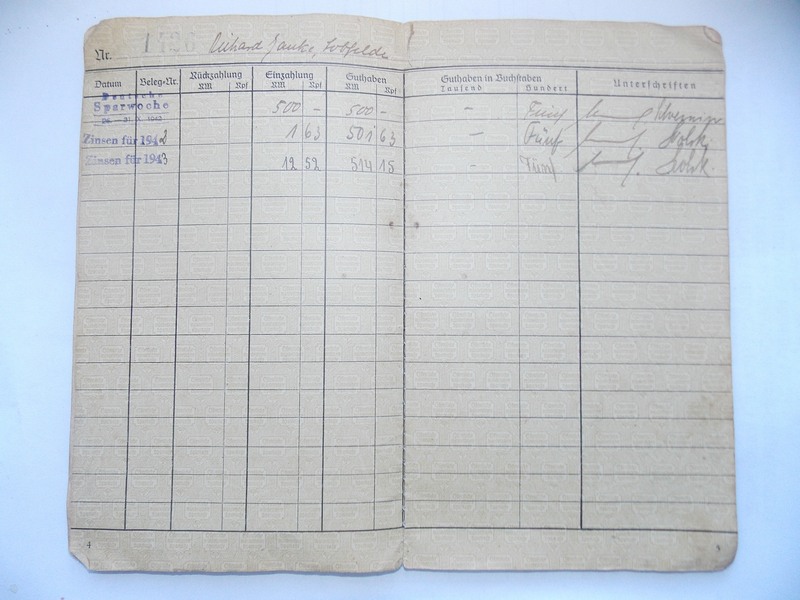 Nr. 1426 Richard Janke,
Datum Beleg-Nr. Rückzahlung RM Rpf Einzahlung RM Rpf Guthaben RM Rpf Guthaben in Buchstaben Tausend Hundert Unterschriften
Deutsche
Sparwoche
26. - 31. X. 1942 500 - 500 - - Fünf
Zinsen für 1942 1 63 501 63 - Fünf
Zinsen für 1943 12 52 514 15 - Fünf
4 5